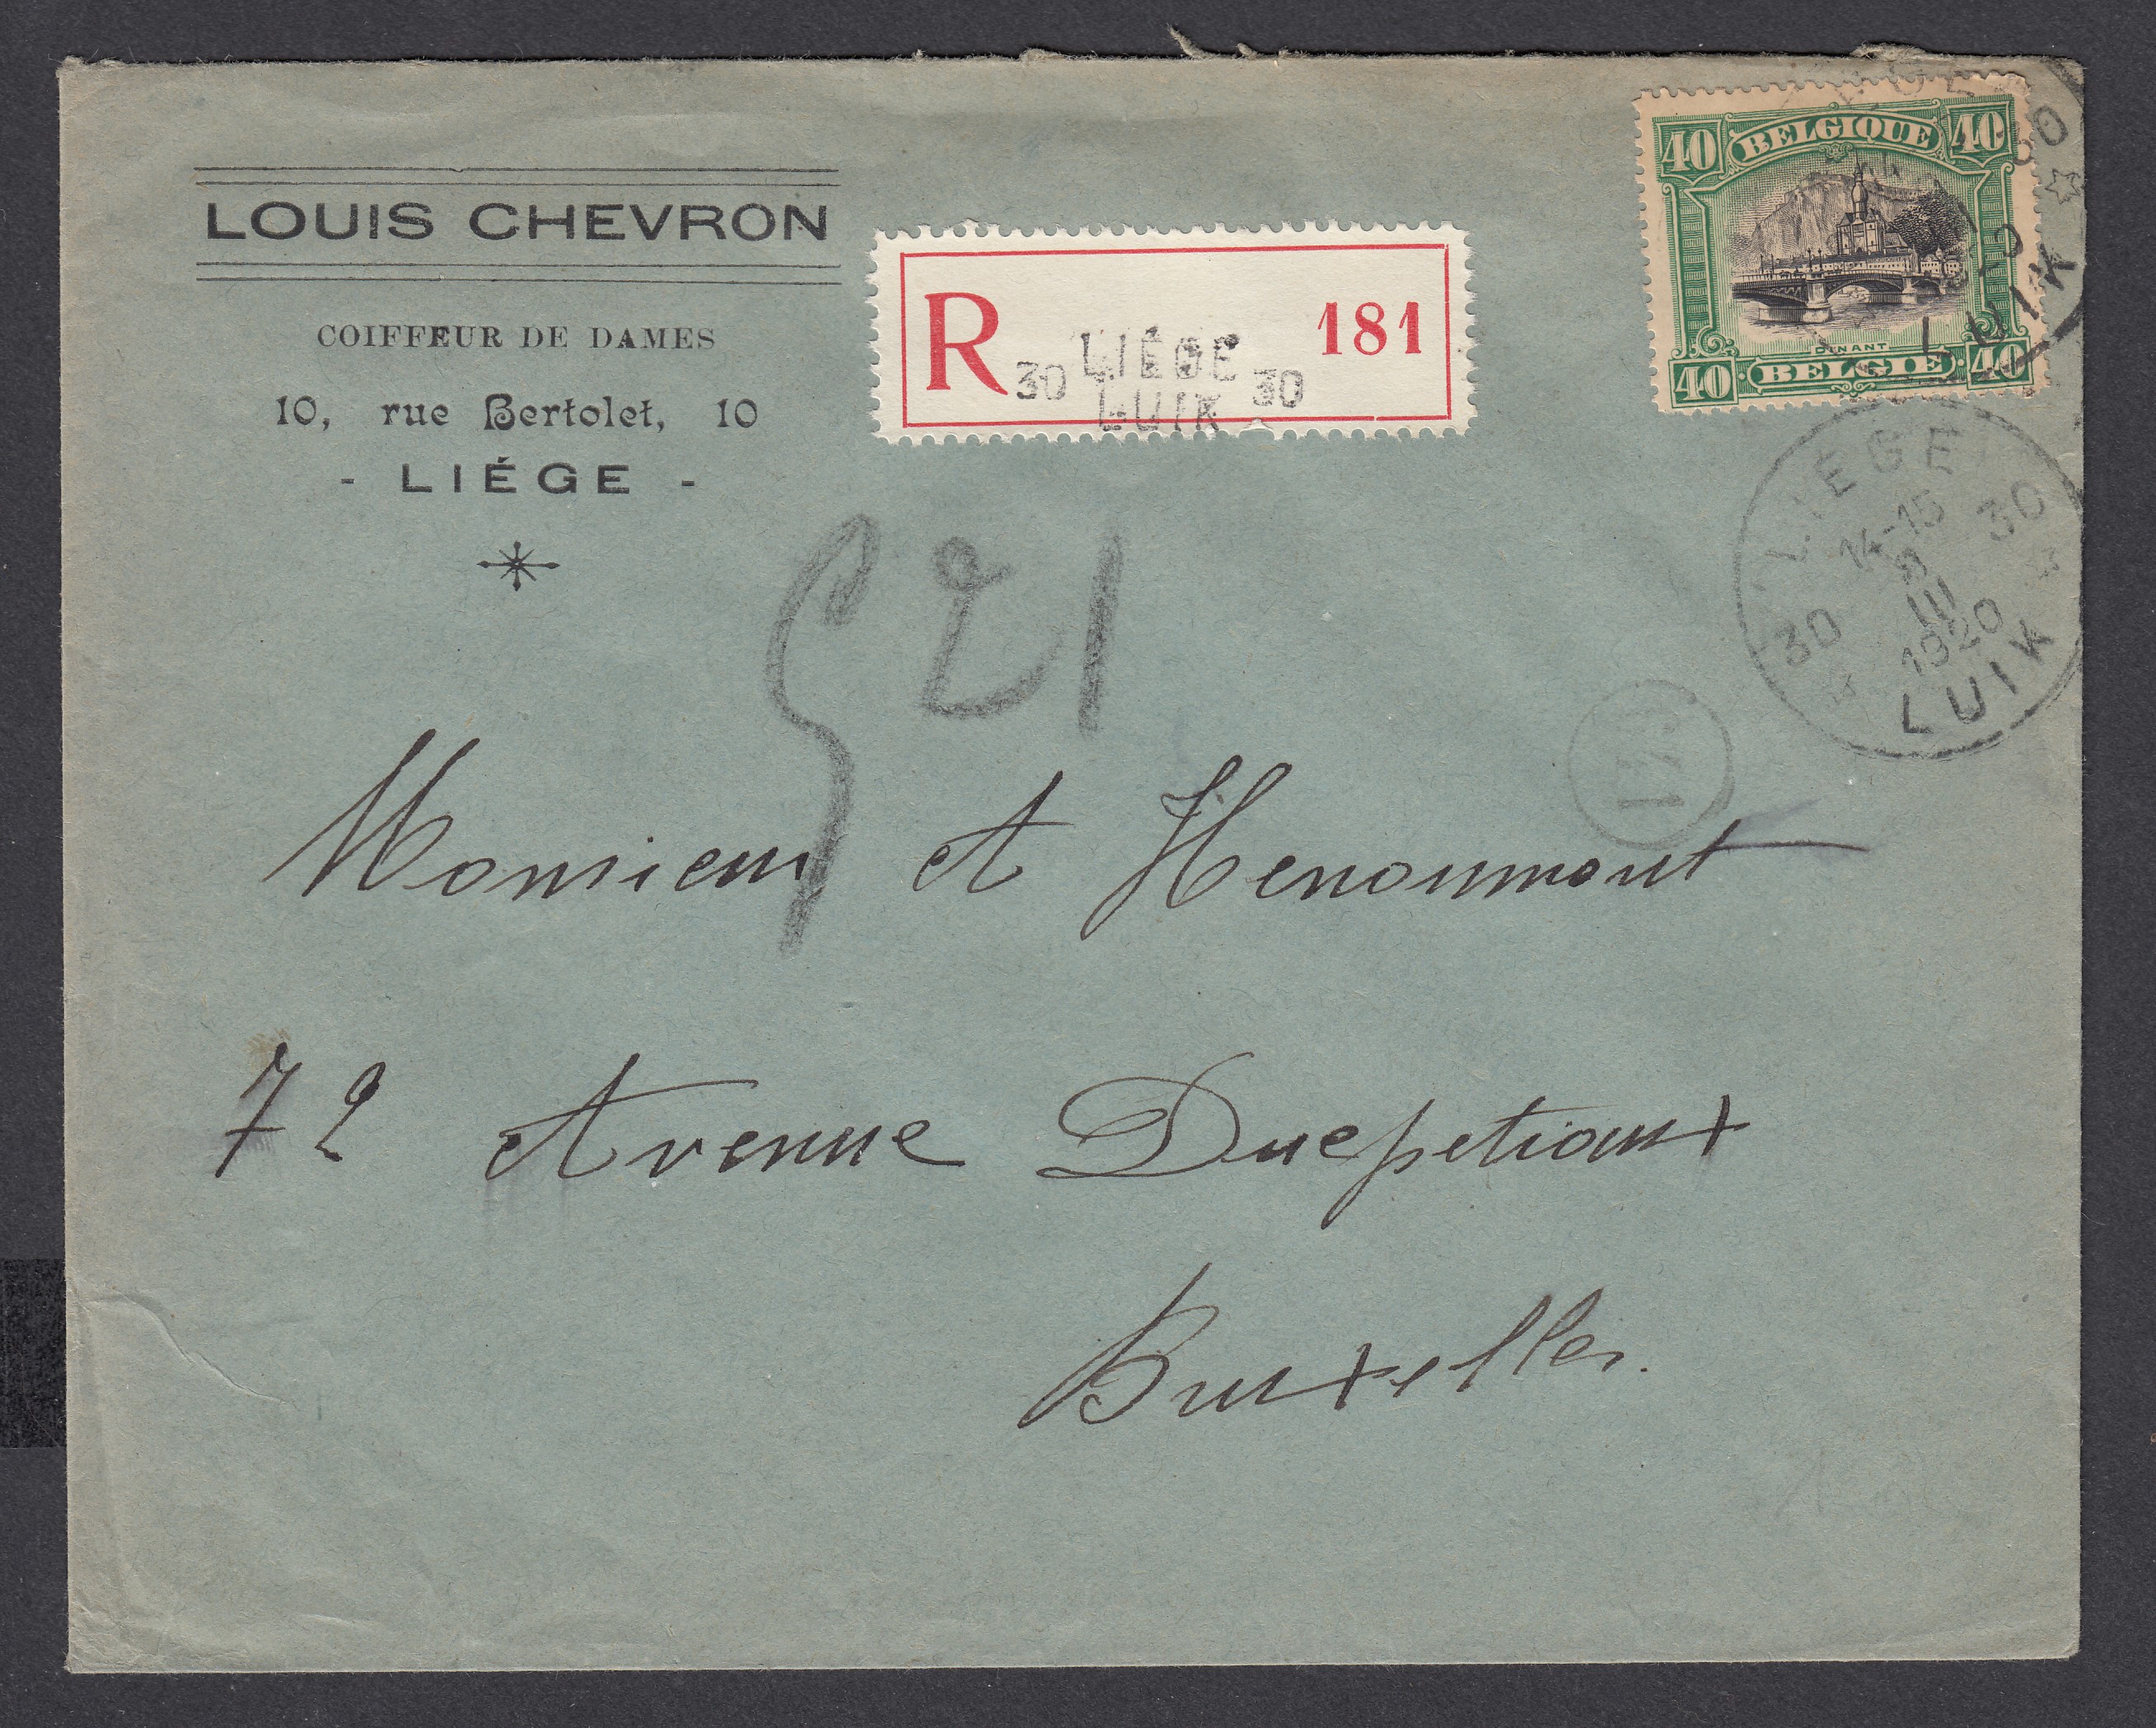 LOUIS CHEVRON
COIFFEUR DE DAMES
10, rue Bertolet, 10
- LIÉGE -
R 30 LIÉGE 30 181
LUIK
40 BELGIQUE 40
DINANT
40 BELGIE 40
30
LUIK
LIEGE
14-15
30 30
III
1920
LUIK
521
Monsieur A Henoumont
72 Avenue Ducpetiaux
Bruxelles.